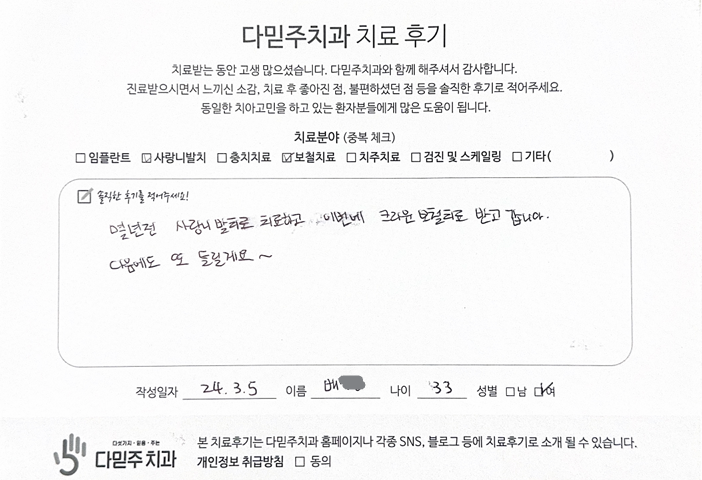 다믿주치과 치료 후기
치료받는 동안 고생 많으셨습니다. 다믿주치과와 함께 해주셔서 감사합니다.
진료받으시면서 느끼신 소감, 치료 후 좋아진 점, 불편하셨던 점 등을 솔직한 후기로 적어주세요.
동일한 치아고민을 하고 있는 환자분들에게 많은 도움이 됩니다.
치료분야 (중복 체크)
☐ 임플란트 ☑ 사랑니발치 ☐ 충치치료 ☑ 보철치료 ☐ 치주치료 ☐ 검진 및 스케일링 ☐ 기타( )
솔직한 후기를 적어주세요!
몇년전 사랑니 발치로 치료하고 이번에 크라운 보철치료 받고 갑니다.
다음에도 또 들릴게요~
작성일자 24. 3. 5 이름 배 나이 33 성별 ☐ 남 ☑ 여
다섯가지·믿음·주는
다믿주치과
본 치료후기는 다믿주치과 홈페이지나 각종 SNS, 블로그 등에 치료후기로 소개 될 수 있습니다.
개인정보 취급방침 ☐ 동의